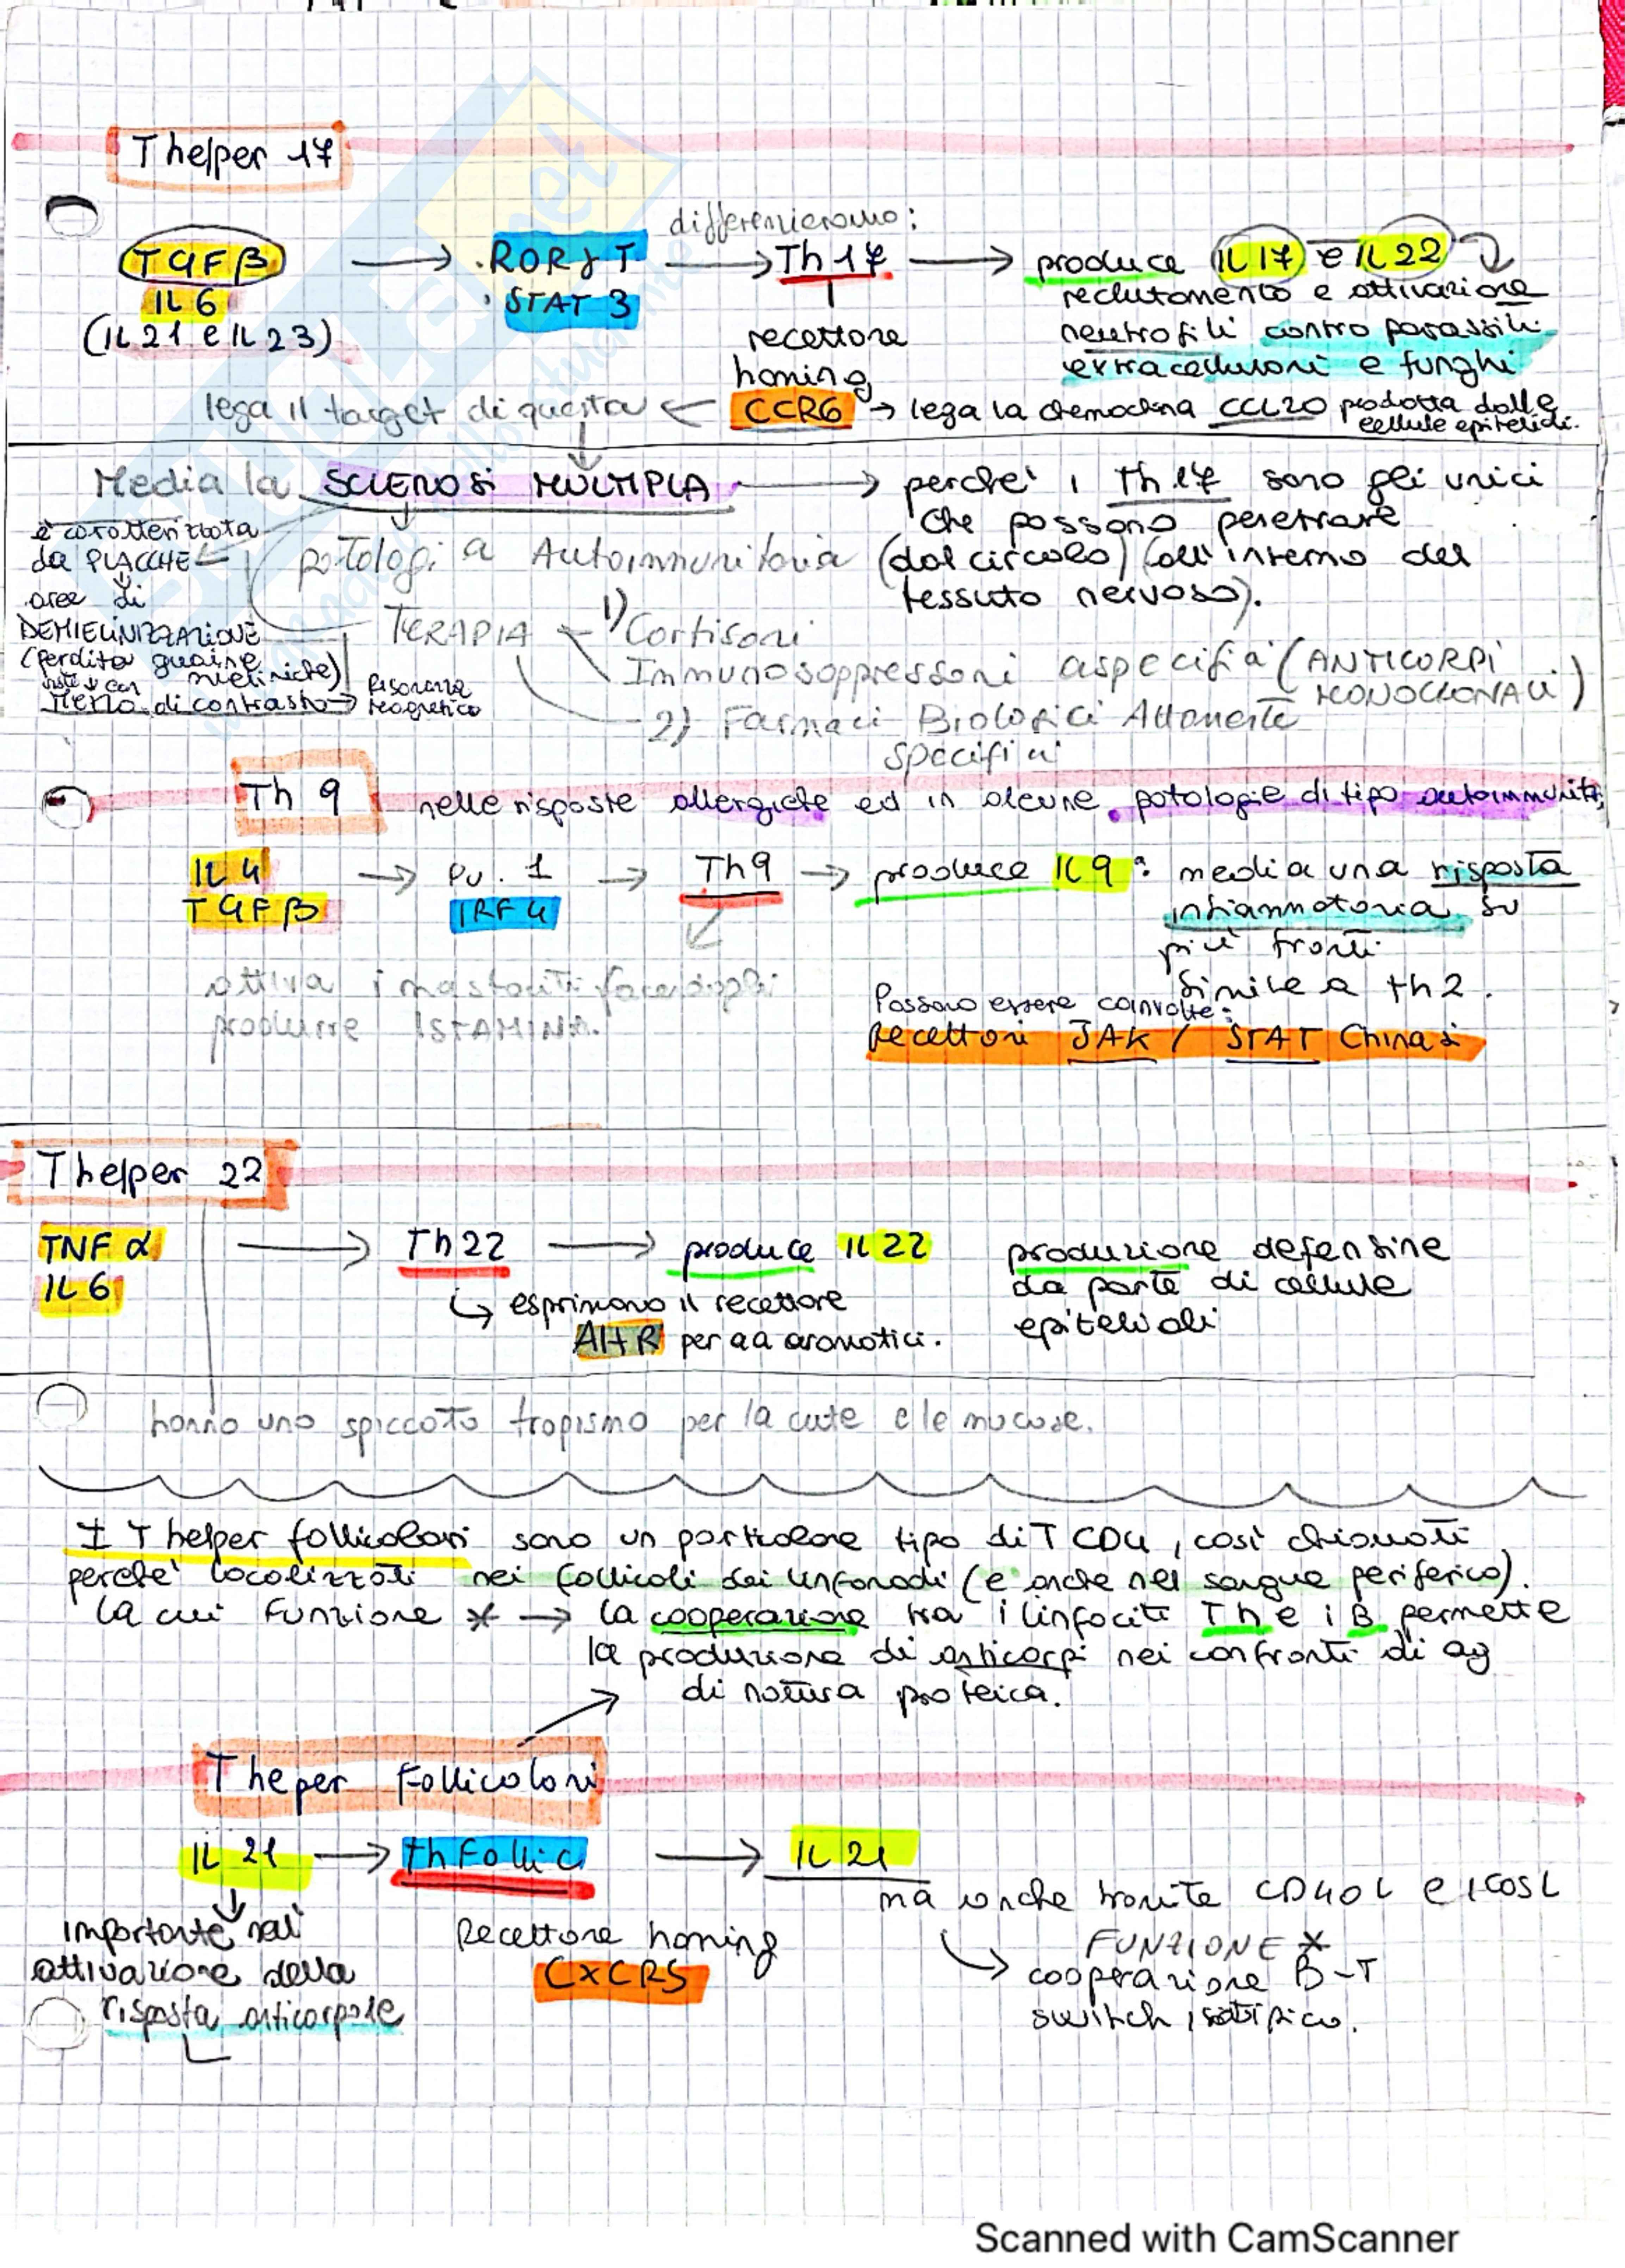 T helper 17
differenziano:
TGFβ → RORγT → Th17 → produce IL17 e IL22
IL6 STAT3
(IL21 e IL23)
reclutamento e attivazione
neutrofili contro parassiti
extracellulari e funghi
recettore
homing
lega il target di questa ← CCR6 → lega la chemochina CCL20 prodotta dalle
cellule epiteliali.
Media la SCLEROSI MULTIPLA → perché i Th17 sono gli unici
che possono penetrare
(dal circolo) (all'interno del
tessuto nervoso).
è caratterizzata
da PLACCHE
aree di
DEMIELINIZZAZIONE
(perdita guaine
mieliniche)
viste con
mezzo di contrasto → Risonanza
magnetica
patologia Autoimmunitaria
TERAPIA
1) Cortisoni
Immunosoppressori aspecifici (ANTICORPI
MONOCLONALI)
2) Farmaci Biologici Altamente
specifici
Th 9 nelle risposte allergiche ed in alcune patologie di tipo autoimmunit
IL4 → PU.1 → Th9 → produce IL9: media una risposta
TGFβ IRF4
infiammatoria su
più fronti
simile a th2.
attiva i mastociti facendogli
produrre ISTAMINA.
Possono essere coinvolte:
Recettori JAK / STAT Chinasi
T helper 22
TNFα → Th22 → produce IL22 produzione defensine
IL6
da parte di cellule
epiteliali
↳ esprimono il recettore
AHR per aa aromatici.
hanno uno spiccato tropismo per la cute e le mucose.
I T helper follicolari sono un particolare tipo di T CD4, così chiamati
perché localizzati nei follicoli dei linfonodi (e anche nel sangue periferico).
la cui funzione * → la cooperazione tra i linfociti Th e i B permette
la produzione di anticorpi nei confronti di ag
di natura proteica.
T heper Follicolari
IL21 → thFollic → IL21
ma anche tramite CD40L e ICOSL
Importante nell'
attivazione della
risposta anticorpale
Recettore homing
CXCR5
FUNZIONE *
cooperazione B-T
switch isotipico.
Scanned with CamScanner